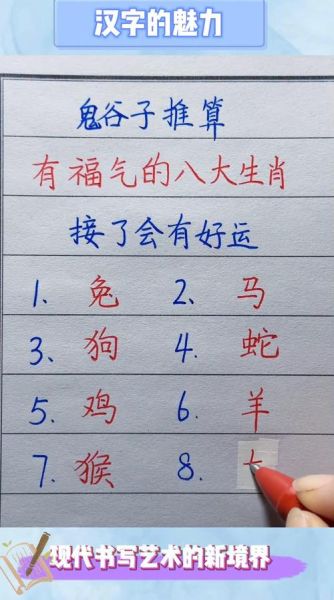 汉字的魅力
鬼谷子推算
有福气的八大生肖
接了会有好运
1、兔 2、马
3、狗 4、蛇
5、鸡 6、羊
7、猴 8、
现代书写艺术的新境界